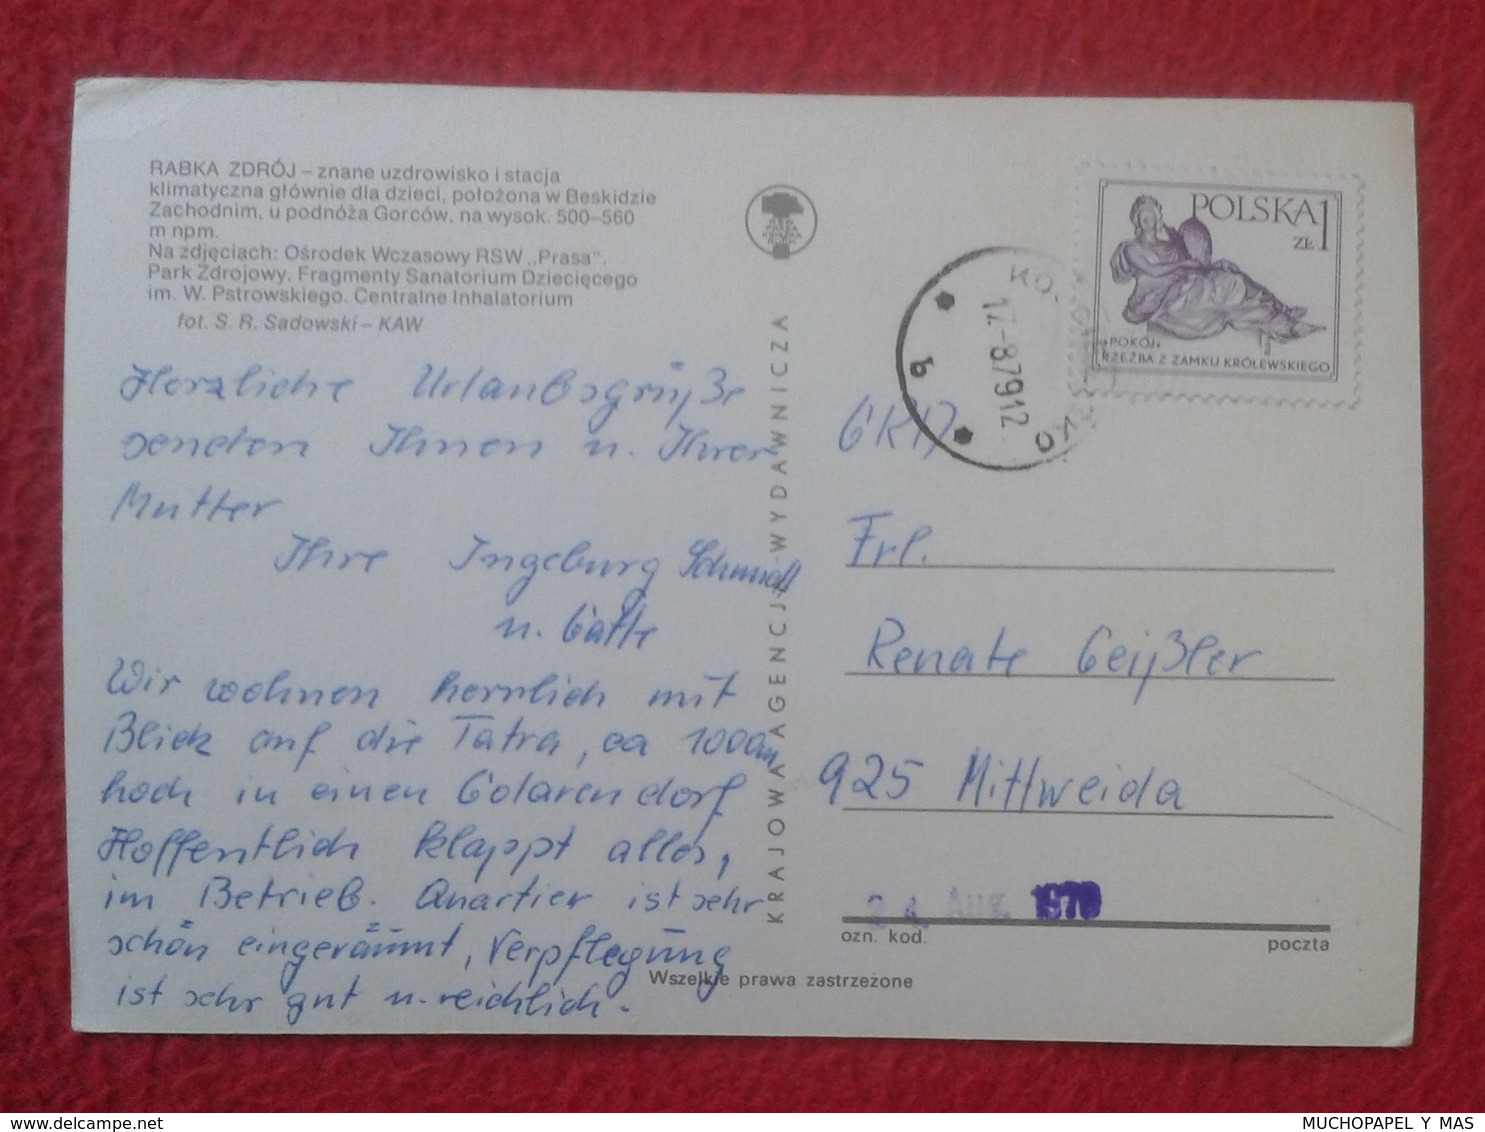 RABKA ZDRÓJ – znane uzdrowisko i stacja
klimatyczna głównie dla dzieci, położona w Beskidzie
Zachodnim, u podnóża Gorców, na wysok. 500–560
m npm.
Na zdjęciach: Ośrodek Wczasowy RSW „Prasa".
Park Zdrojowy. Fragmenty Sanatorium Dziecięcego
im. W. Pstrowskiego. Centralne Inhalatorium
fot. S. R. Sadowski – KAW
Herzliche Urlaubsgrüße
senden Ihnen u. Ihrer
Mutter
Ihre Ingeburg Schmidt
u. Gatte
Wir wohnen herrlich mit
Blick auf die Tatra, ca 1000m
hoch in einen Goralendorf
Hoffentlich klappt alles,
im Betrieb. Quartier ist sehr
schön eingeräumt, Verpflegung
ist sehr gut u. reichlich.
KRAJOWA AGENCJA WYDAWNICZA
POLSKA 1
ZŁ
"POKÓJ"
RZEŹBA Z ZAMKU KRÓLEWSKIEGO
17.-8.79 12
b
Frl.
Renate Geißler
925 Mittweida
24 AUG. 1979
ozn. kod.
poczta
Wszelkie prawa zastrzeżone
MUCHOPAPEL Y MAS